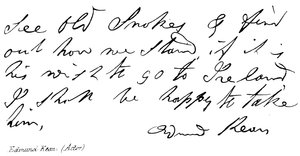 see old Smokes & find
out how we stand, if it is
his wish to go to Ireland
I shall be happy to take
him,
Edmund Kean
Edmund Kean (Actor)